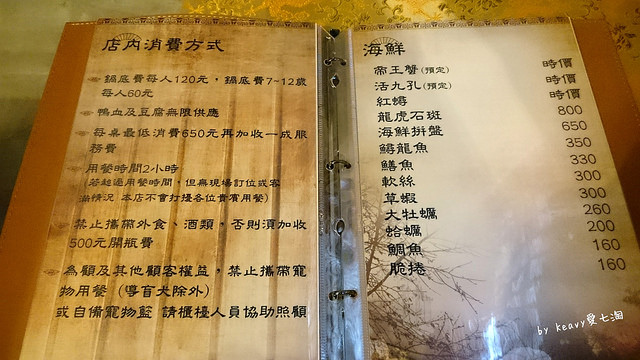 店內消費方式
鍋底費每人120元，鍋底費7~12歲
每人60元
鴨血及豆腐無限供應
每桌最低消費650元再加收一成服
務費
用餐時間2小時
(若超過用餐時間，但無現場訂位或客
滿情況 本店不會打擾各位貴賓用餐)
禁止攜帶外食、酒類，否則須加收
500元開瓶費
為顧及其他顧客權益，禁止攜帶寵
物用餐（導盲犬除外）
或自備寵物籃 請櫃檯人員協助照顧
海鮮
帝王蟹(預定) 時價
活九孔(預定) 時價
紅蟳 時價
龍虎石斑 800
海鮮拼盤 650
鱘龍魚 350
鱔魚 330
軟絲 300
草蝦 300
大牡蠣 260
蛤蠣 200
鯛魚 160
脆捲 160
by keavy愛七淘